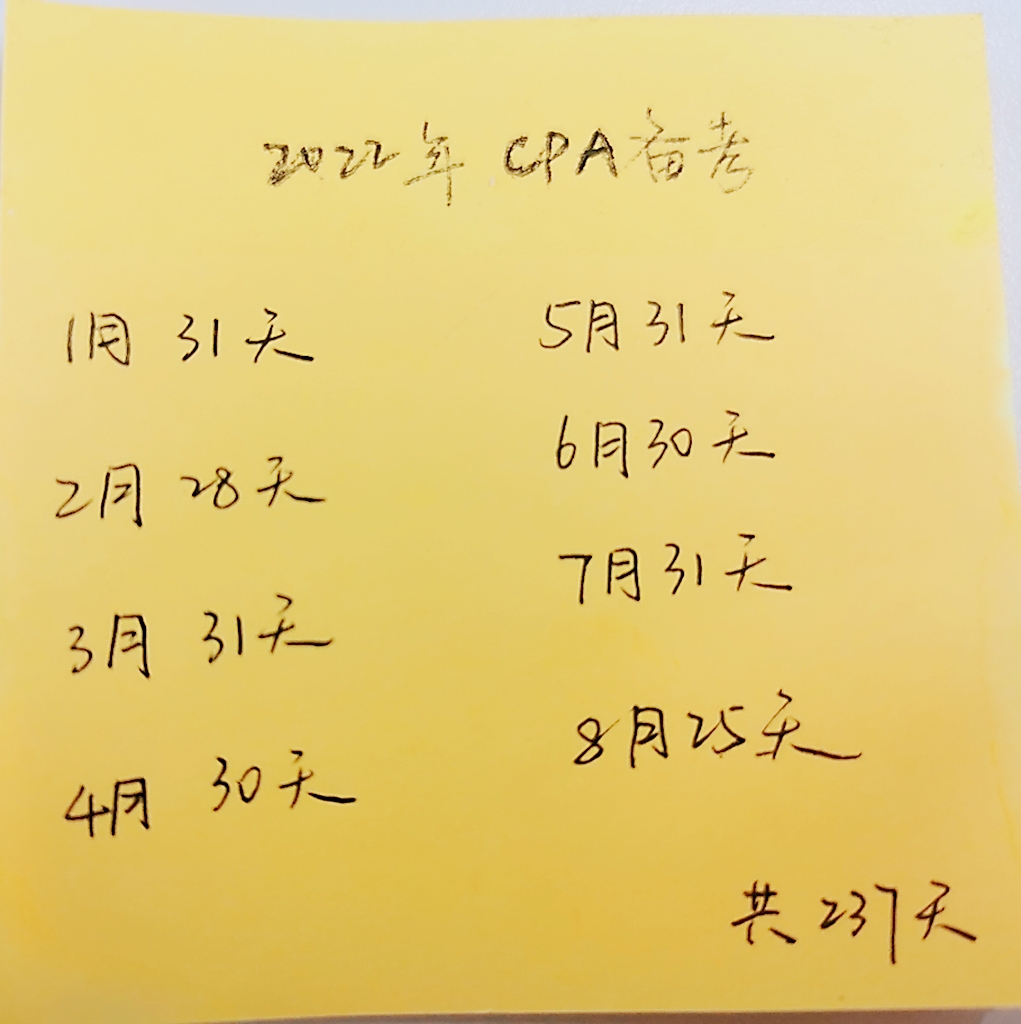 2022年 CPA备考
1月 31天
2月 28天
3月 31天
4月 30天
5月31天
6月30天
7月31天
8月25天
共237天